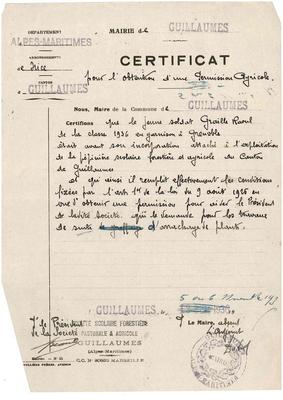 DÉPARTEMENT
ALPES-MARITIMES
MAIRIE de
GUILLAUMES
ARRONDISSEMENT
de Nice
CANTON
GUILLAUMES
CERTIFICAT
pour l'obtention d'une Permission Agricole.
Nous, Maire de la Commune de GUILLAUMES
Certifions que le jeune soldat Raoul
de la classe 1936 en garnison à Grenoble
était avant son incorporation attaché à l'exploitation
de la pépinière scolaire forestière et agricole du Canton
de Guillaumes
et qu'ainsi il remplit effectivement les conditions
fixées par l'art 1er de la loi du 9 août 1926 en
vue d'obtenir une permission pour aider le Président
de ladite Société qui le demande pour les travaux
de d'arrachage de plants.
GUILLAUMES
Novembre 193
Le Maire, absent
L'Adjoint
Le Président
de la Société
SCOLAIRE FORESTIÈRE
PASTORALE & AGRICOLE
GUILLAUMES
(Alpes-Maritimes)
C.C. MARSEILLE